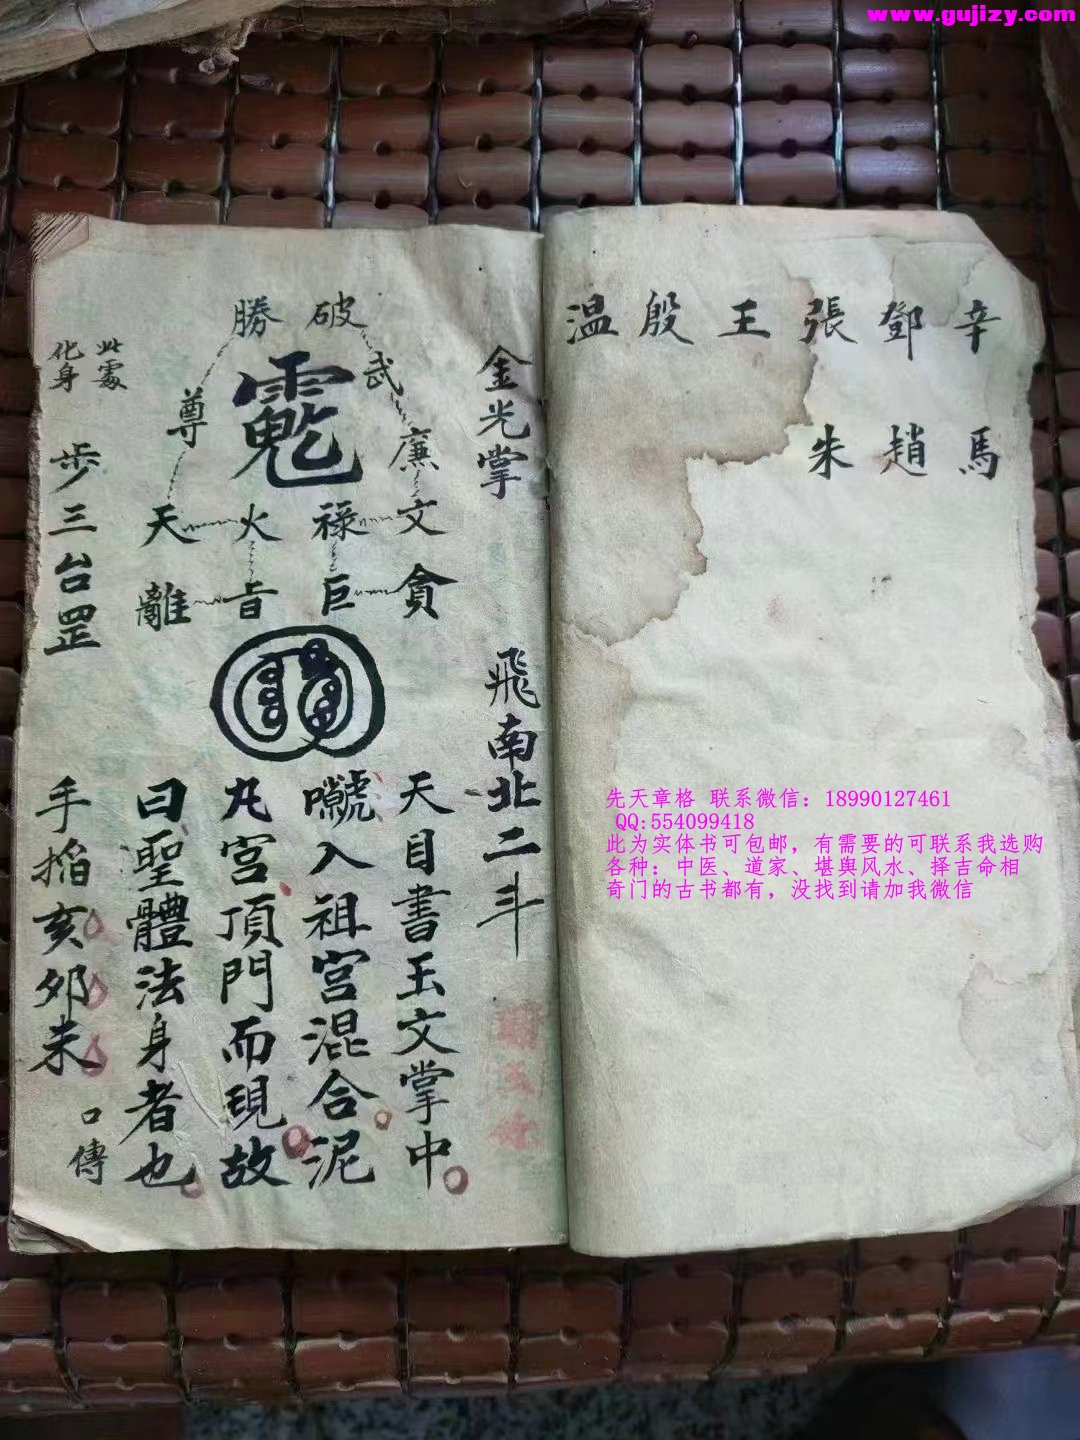 www.gujizy.com
辛 鄧 張 王 殷 温
馬 趙 朱
先天章格 联系微信：18990127461
QQ:554099418
此为实体书可包邮，有需要的可联系我选购
各种：中医、道家、堪舆风水、择吉命相
奇门的古书都有，没找到请加我微信
金光掌
飛南北二斗
破 勝
武 尊
廉
文 祿 火 天
貪 巨 離
天目書玉文掌中
入祖宫混合泥
丸宫頂門而現故
曰聖體法身者也
此處
化身
步三台罡
手掐亥夘未
口傳